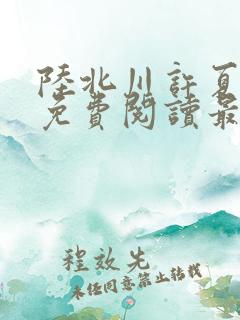 陸北川許夏
免費閱讀最
程效先
未任同意禁止轉載